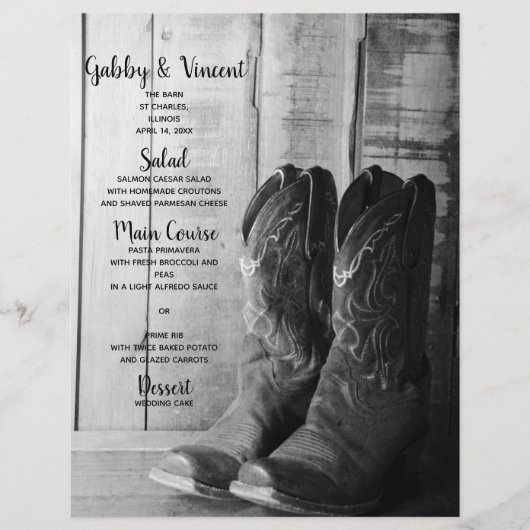 Gabby & Vincent
THE BARN
ST CHARLES,
ILLINOIS
APRIL 14, 20XX
Salad
SALMON CAESAR SALAD
WITH HOMEMADE CROUTONS
AND SHAVED PARMESAN CHEESE
Main Course
PASTA PRIMAVERA
WITH FRESH BROCCOLI AND
PEAS
IN A LIGHT ALFREDO SAUCE
OR
PRIME RIB
WITH TWICE BAKED POTATO
AND GLAZED CARROTS
Dessert
WEDDING CAKE